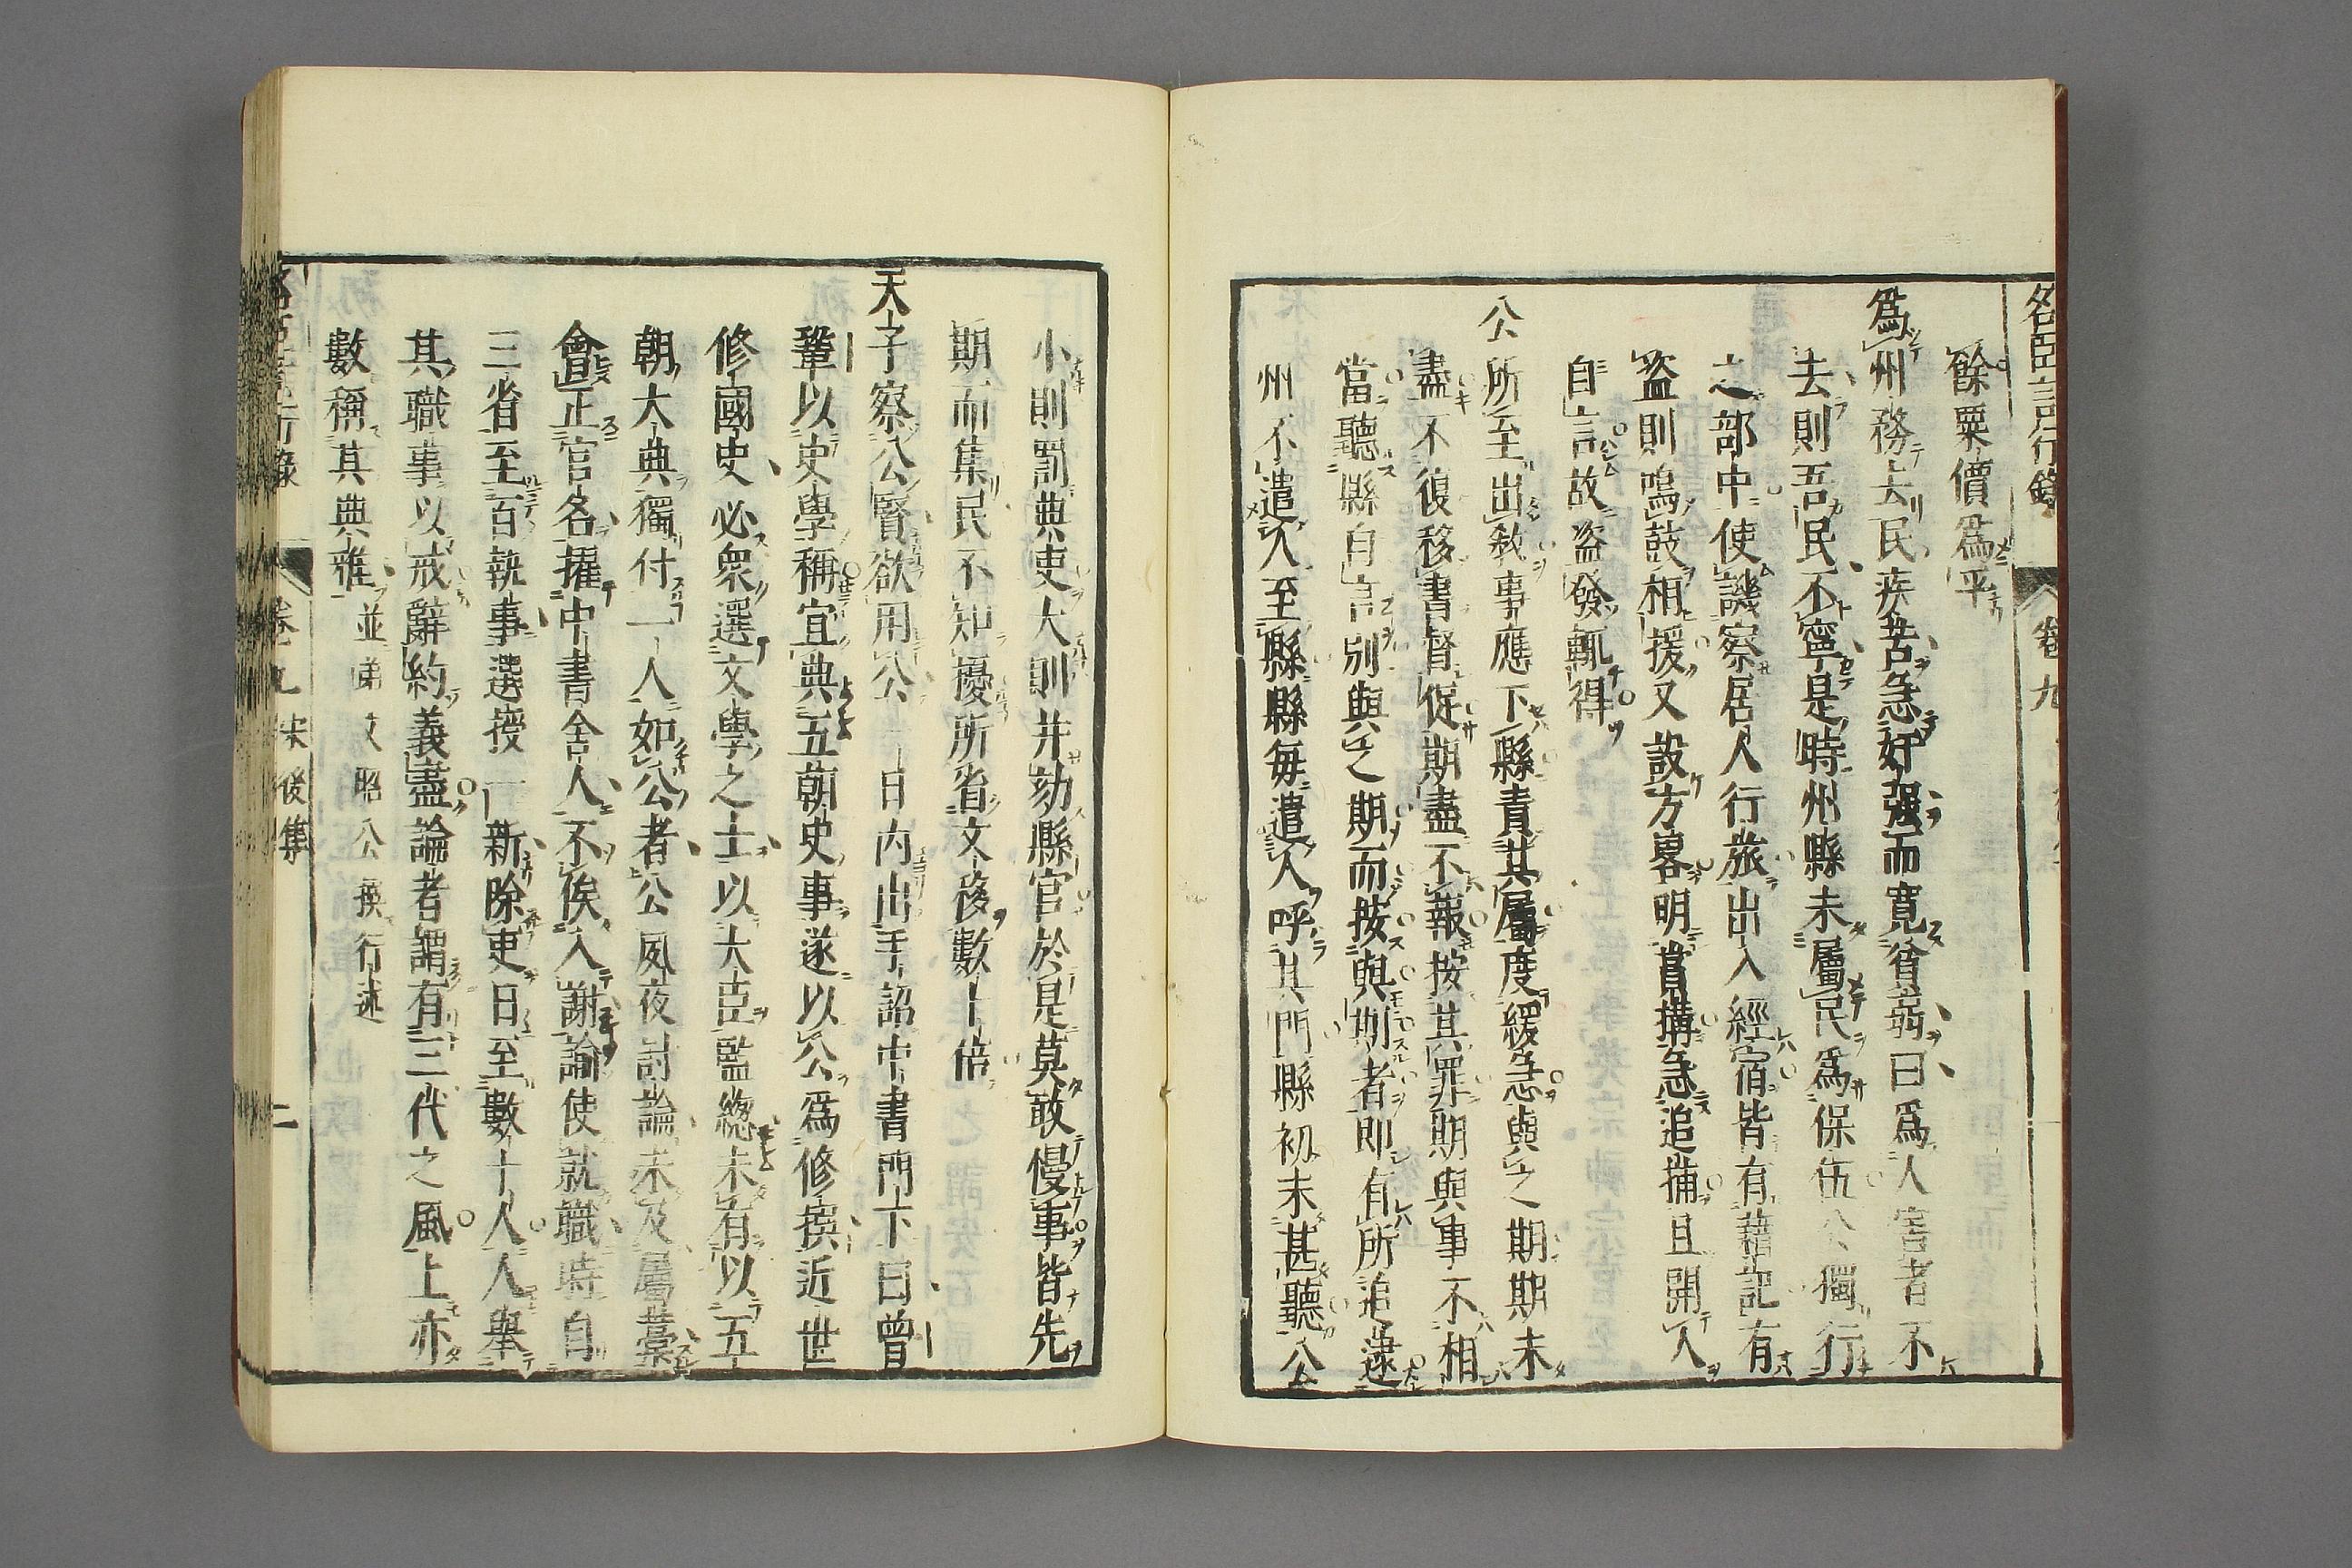 名臣言行錄 卷九
餘粟價爲平
爲州務去民疾苦急奸强而寛貧弱曰爲人害者不
去則吾民不寧是時州縣未屬民爲保伍公獨行
之部中使譏察居人行旅出入經宿皆有藉記有
盜則鳴鼓相援又設方畧明賞購急追捕且開人
自言故盜發輒得
公所至出敎事應下縣責其屬度緩急與之期期未
盡不復移書督促期盡不報按其罪期與事不相
當聽縣自言別與之期而按與期者即有所追逮
州不遣人至縣縣毎遣人呼其門縣初未甚聽公
小則罰典吏大則并劾縣官於是莫敢慢事皆先
期而集民不知擾所省文移數十倍
天子察公賢欲用公一日內出手詔中書門下曰曾
鞏以史學稱宜典五朝史事遂以公爲修撰近世
修國史必衆選文學之士以大臣監總未有以五
朝大典獨付一人如公者公夙夜討論未及屬藁
會正官名擢中書舍人不俟入謝諭使就職時自
三省至百執事選授一新除吏日至數十人人舉
其職事以戒辭約義盡論者謂有三代之風上亦
數稱其典雅 並弟文昭公撰行述
卷九 宋後集 二